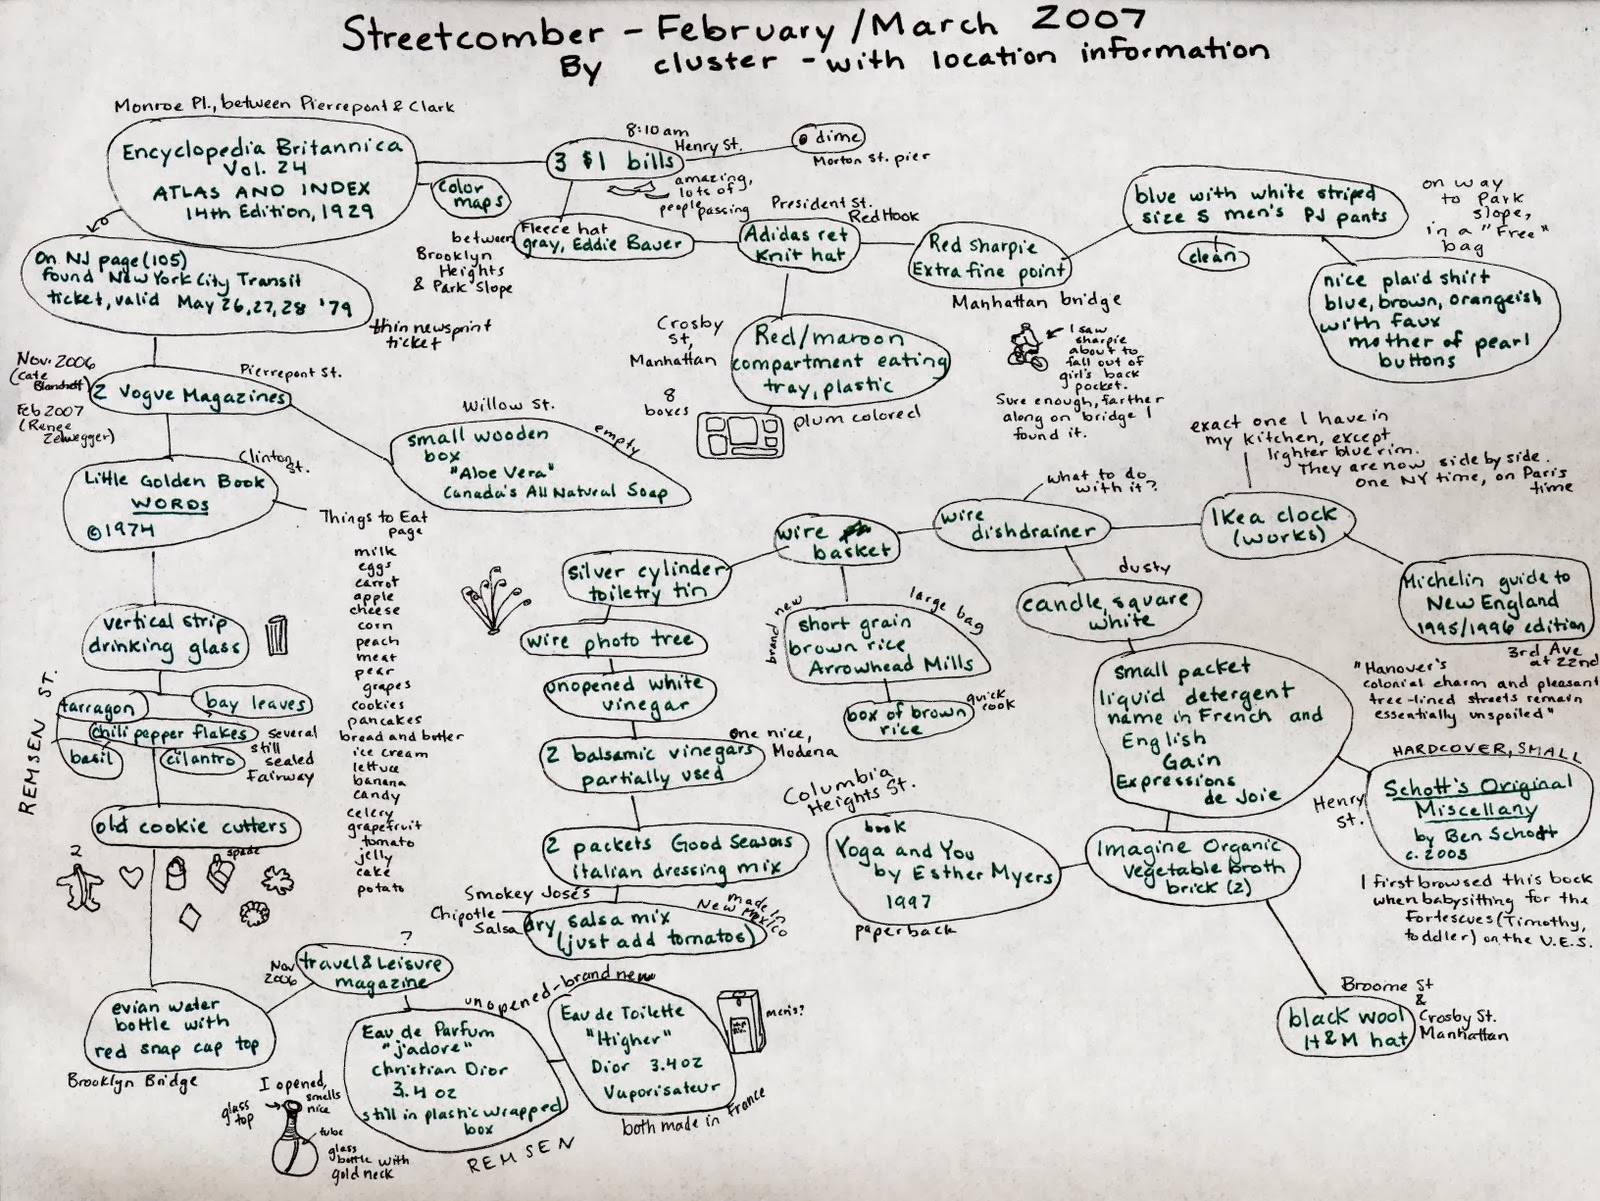 Streetcomber - February/March 2007
By cluster - with location information
Monroe Pl., between Pierrepont & Clark
Encyclopedia Britannica
Vol. 24
ATLAS AND INDEX
14th Edition, 1929
color
maps
8:10 am
Henry St.
3 $1 bills
amazing,
lots of
people passing
dime
Morton St. pier
Fleece hat
gray, Eddie Bauer
between
Brooklyn
Heights
& Park Slope
President St.
Red Hook
Adidas ret
Knit hat
Red sharpie
Extra fine point
Manhattan bridge
I saw
sharpie
about to
fall out of
girl's back
pocket.
Sure enough, farther
along on bridge I
found it.
blue with white striped
size S men's PJ pants
clean
on way
to Park
slope,
in a "Free"
bag
nice plaid shirt
blue, brown, orangeish
with faux
mother of pearl
buttons
On NJ page (105)
found New York City Transit
ticket, valid May 26, 27, 28 '79
thin newsprint
ticket
Crosby
St,
Manhattan
Red/maroon
compartment eating
tray, plastic
8
boxes
plum colored
Nov. 2006
(Cate
Blanchett)
Feb 2007
(Renee
Zelwegger)
Pierrepont St.
2 Vogue Magazines
Willow St.
empty
small wooden
box
"Aloe Vera"
Canada's All Natural Soap
Clinton
St.
Little Golden Book
WORDS
©1974
Things to Eat
page
milk
eggs
carrot
apple
cheese
corn
peach
meat
pear
grapes
cookies
pancakes
bread and butter
ice cream
lettuce
banana
candy
celery
grapefruit
tomato
jelly
cake
potato
exact one I have in
my kitchen, except
lighter blue rim.
They are now side by side.
one NY time, on Paris
time
what to do
with it?
wire
basket
wire
dishdrainer
Ikea clock
(works)
silver cylinder
toiletry tin
brand new
large bag
short grain
brown rice
Arrowhead Mills
dusty
candle, square
white
Michelin guide to
New England
1995/1996 edition
3rd Ave
at 22nd
"Hanover's
colonial charm and pleasant
tree-lined streets remain
essentially unspoiled"
vertical strip
drinking glass
wire photo tree
unopened white
vinegar
box of brown
rice
quick
cook
small packet
liquid detergent
name in French and
English
Gain
Expressions
de Joie
REMSEN ST.
tarragon
bay leaves
chili pepper flakes
basil
cilantro
several
still
sealed
Fairway
2 balsamic vinegars
partially used
one nice,
Modena
HARDCOVER, SMALL
Henry
St.
Schott's Original
Miscellany
by Ben Schott
c. 2003
I first browsed this book
when babysitting for the
Fortescues (Timothy,
toddler) on the U.E.S.
old cookie cutters
2
spade
2 packets Good Seasons
italian dressing mix
Columbia
Heights St.
book
Yoga and You
by Esther Myers
1997
paperback
Imagine Organic
vegetable broth
brick (2)
Smokey José's
Chipotle
Salsa
made in
New Mexico
dry salsa mix
(just add tomatos)
?
Nov
2006
travel & Leisure
magazine
evian water
bottle with
red snap cap top
Brooklyn Bridge
unopened-brand new
Eau de Parfum
"j'adore"
Christian Dior
3.4 oz
still in plastic wrapped
box
Eau de Toilette
"Higher"
Dior 3.4 oz
Vaporisateur
men's?
both made in France
REMSEN
I opened,
smells
nice
glass
top
tube
glass
bottle with
gold neck
Broome St
&
Crosby St.
Manhattan
black wool
H&M hat